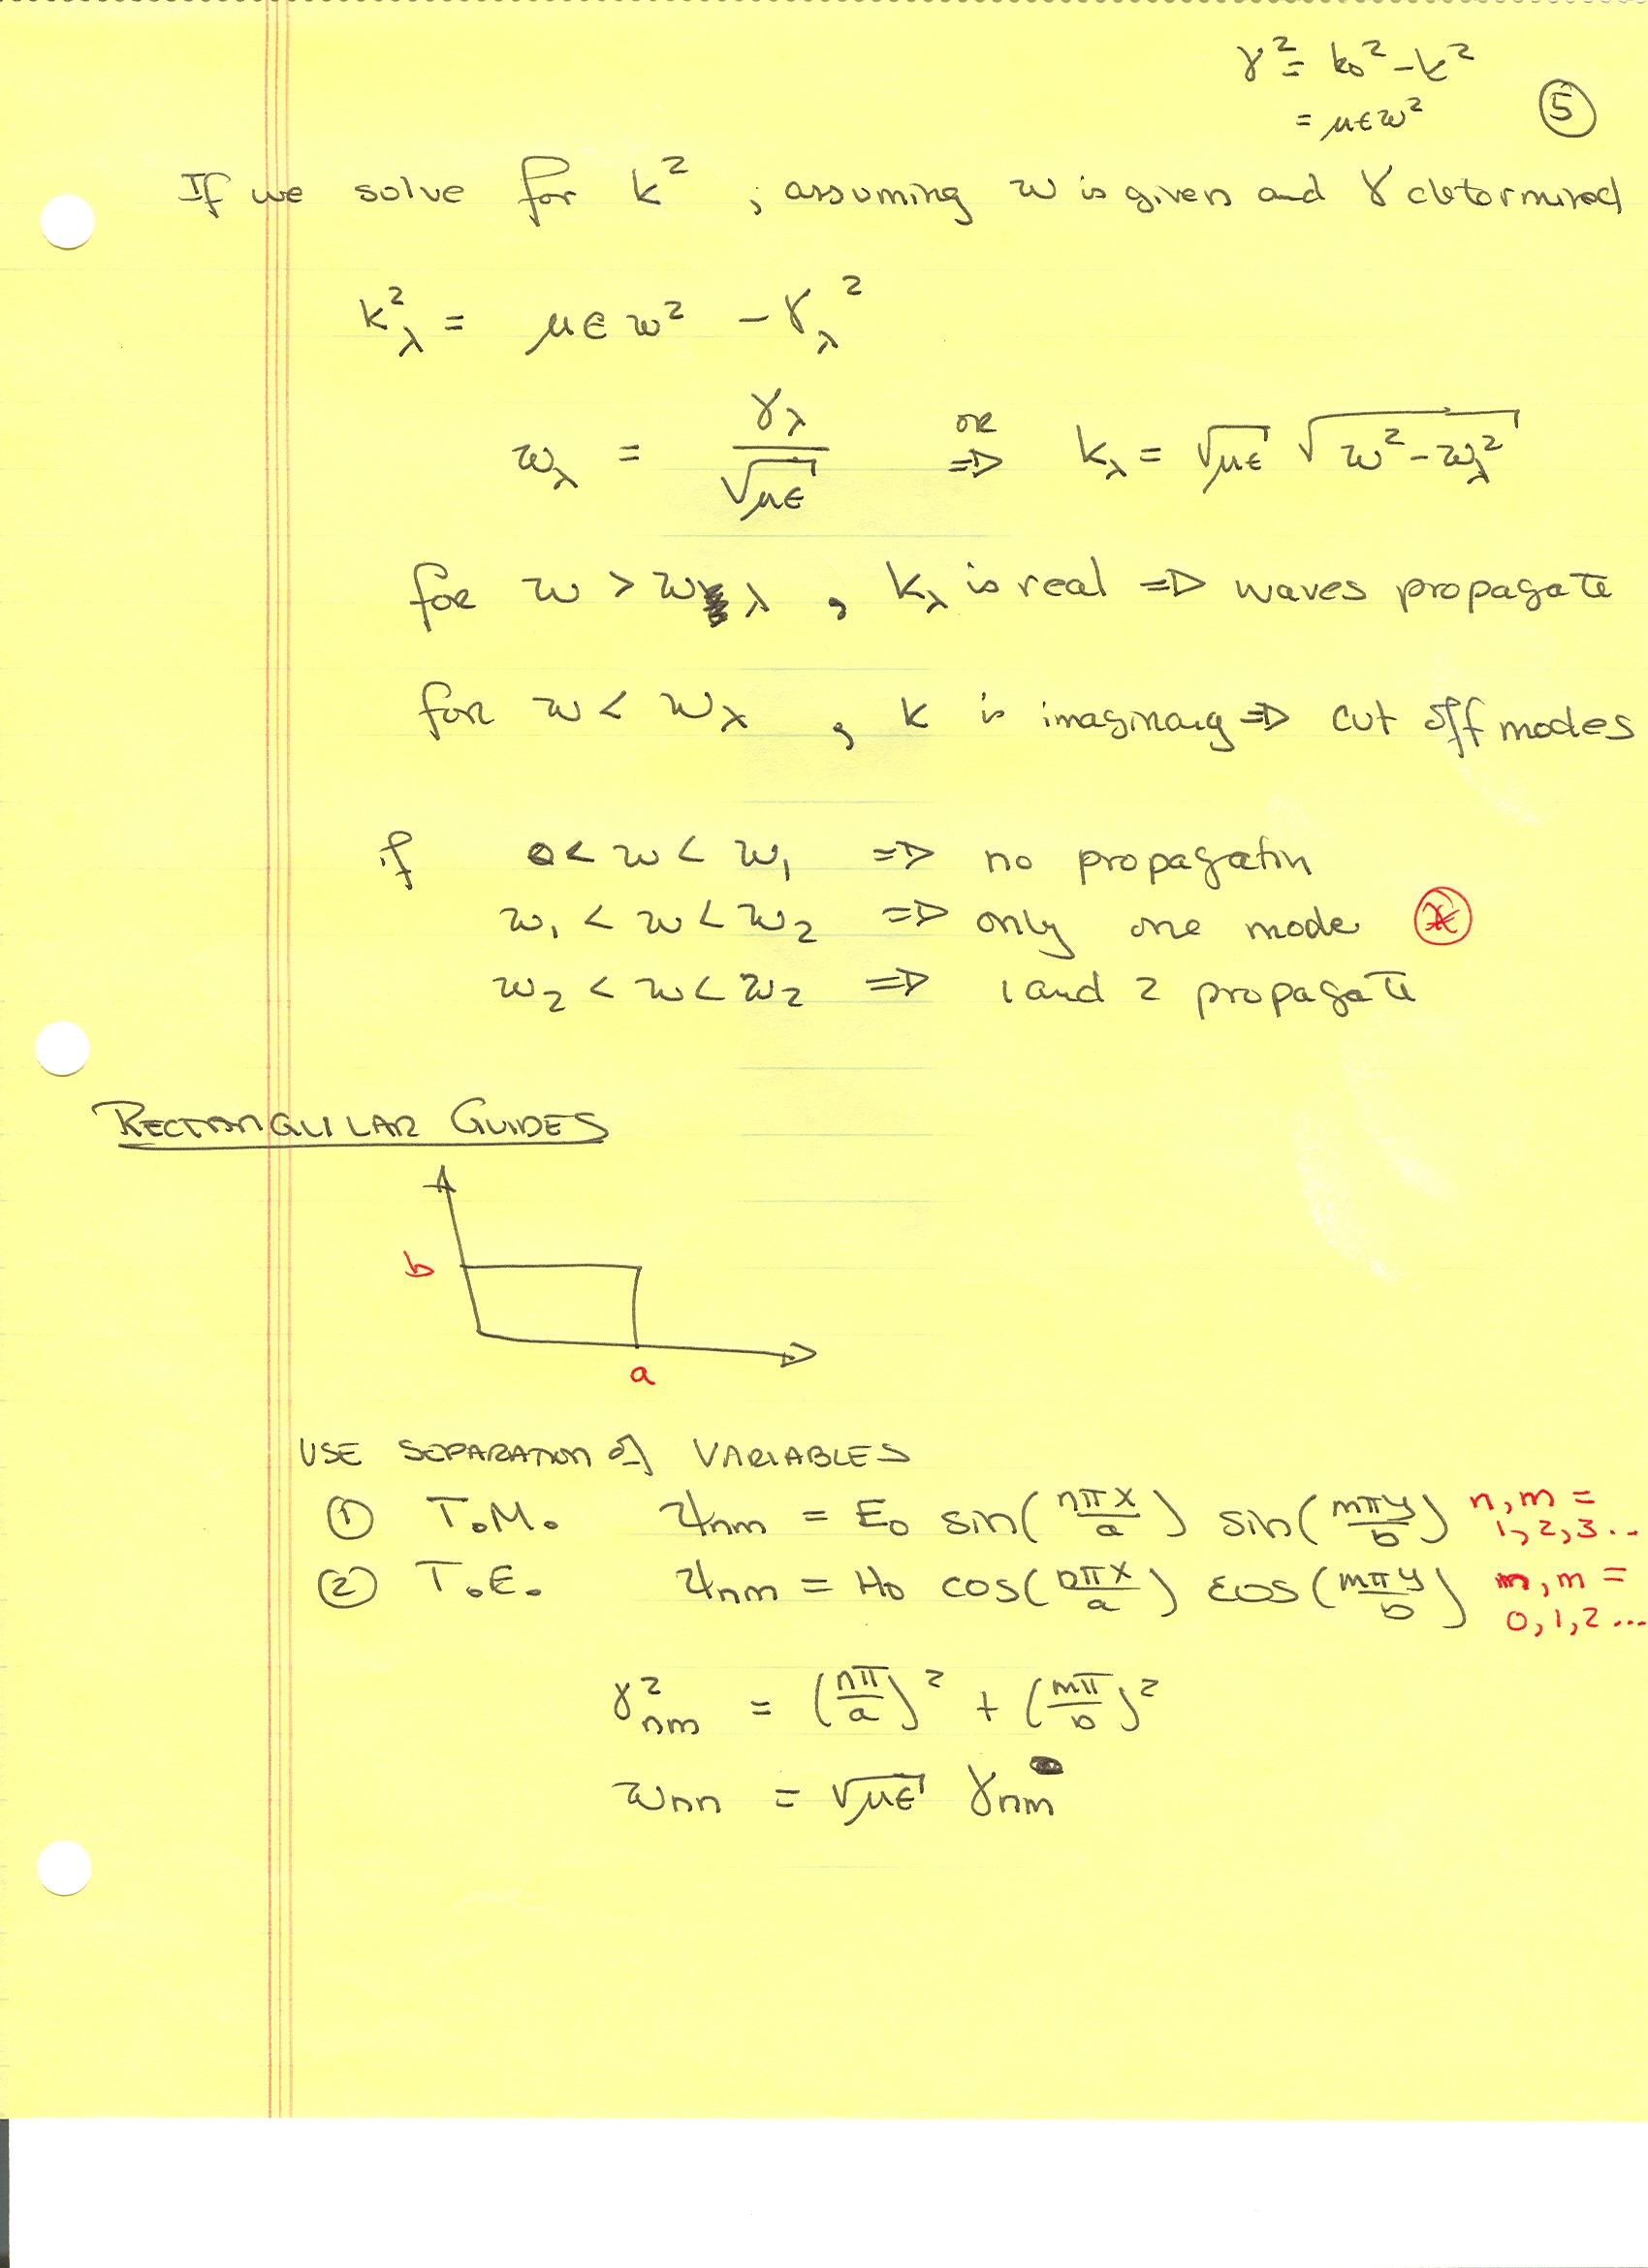 γ² = k₀² - k²
= μεω²
⑤
If we solve for k² , assuming ω is given and γ determined
k²_λ = με ω² - γ_λ²
ω_λ = γ_λ / √με  or ⇒  k_λ = √με √(ω² - ω_λ²)
for ω > ω_λ , k_λ is real ⇒ waves propagate
for ω < ω_λ , k is imaginary ⇒ cut off modes
if 0 < ω < ω₁ ⇒ no propagatin
ω₁ < ω < ω₂ ⇒ only one mode ⊛
ω₂ < ω < ω₂ ⇒ 1 and 2 propagate
RECTANGULAR GUIDES
b
a
USE SEPARATION of VARIABLES
① T.M. ψ_nm = E₀ sin(nπx/a) sin(mπy/b) n,m = 1,2,3...
② T.E. ψ_nm = H₀ cos(nπx/a) cos(mπy/b) n,m = 0,1,2...
γ²_nm = (nπ/a)² + (mπ/b)²
ω_nn = √με γ_nm